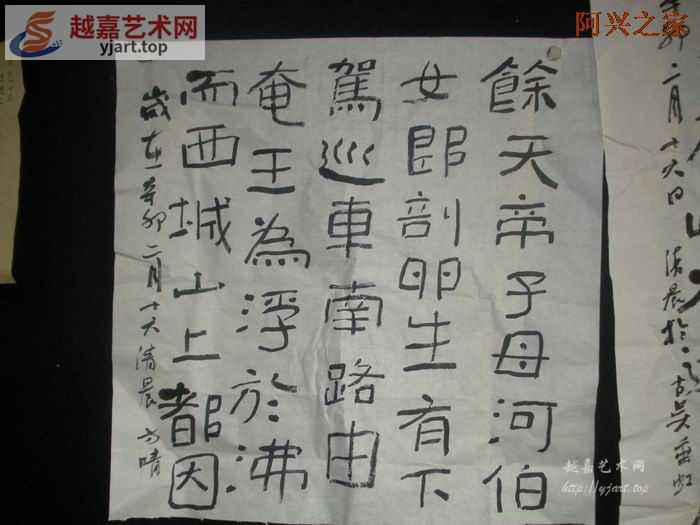 越嘉艺术网
yjart.top
阿兴之家
餘天帝子母河伯
女郎剖卵生有下
駕巡車南路由
奄王為浮於沸
而西城山上都因
歲在辛卯二月十六清晨方晴
辛卯二月十六日
清晨於
越嘉艺术网
http://yjart.top